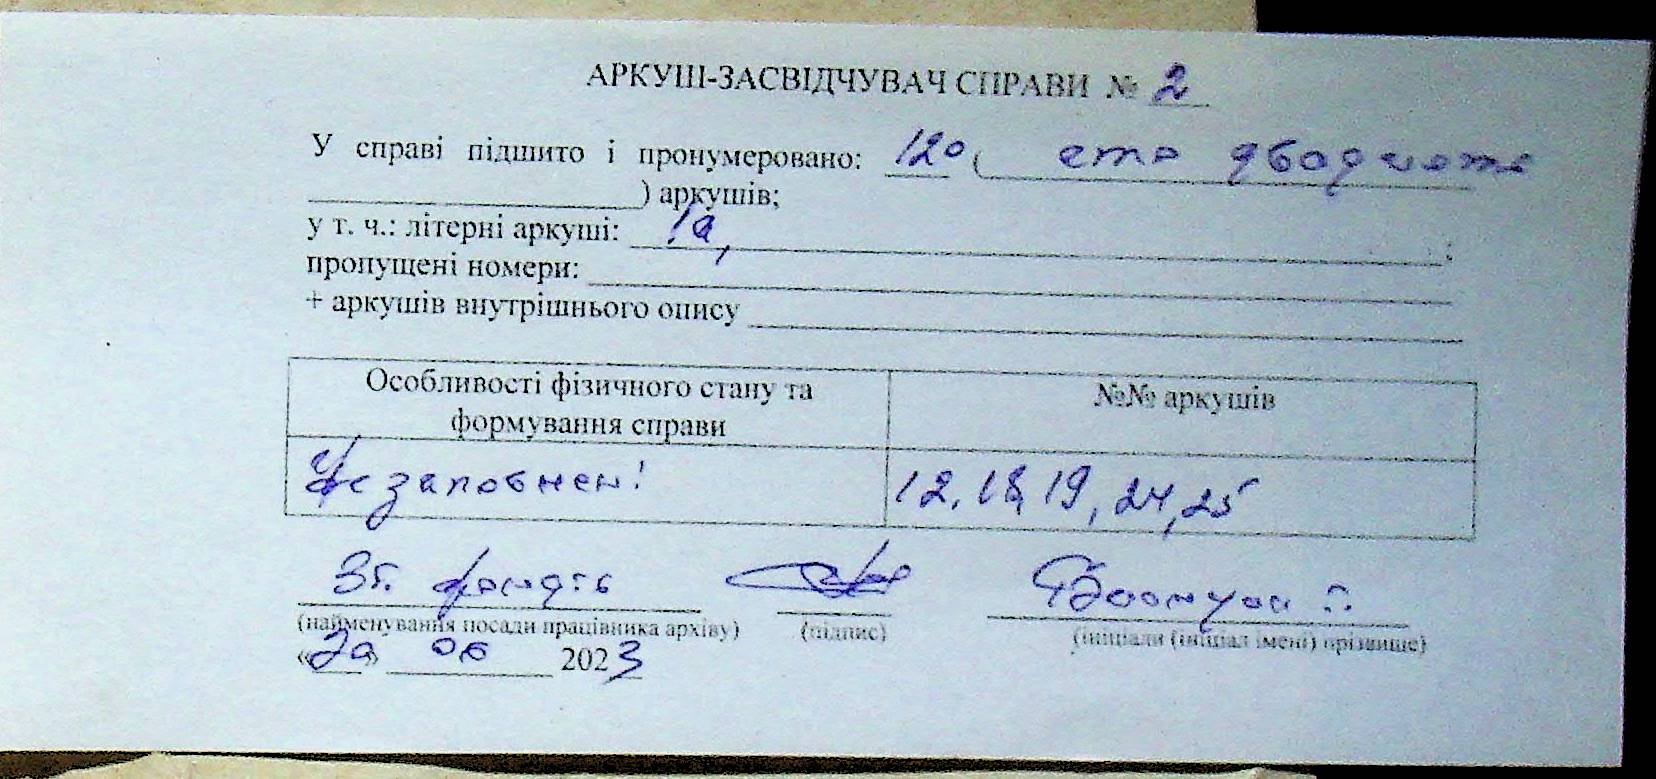 АРКУШ-ЗАСВІДЧУВАЧ СПРАВИ № 2
У справі підшито і пронумеровано: 120 ( сто двадцять
) аркушів;
у т. ч.: літерні аркуші: 1а, ;
пропущені номери:
+ аркушів внутрішнього опису
Особливості фізичного стану та формування справи
№№ аркушів
12, 18, 19, 24, 25
Зб. фондів
(найменування посади працівника архіву) (підпис) (ініціали (ініціал імені) прізвище)
« » 06 2023